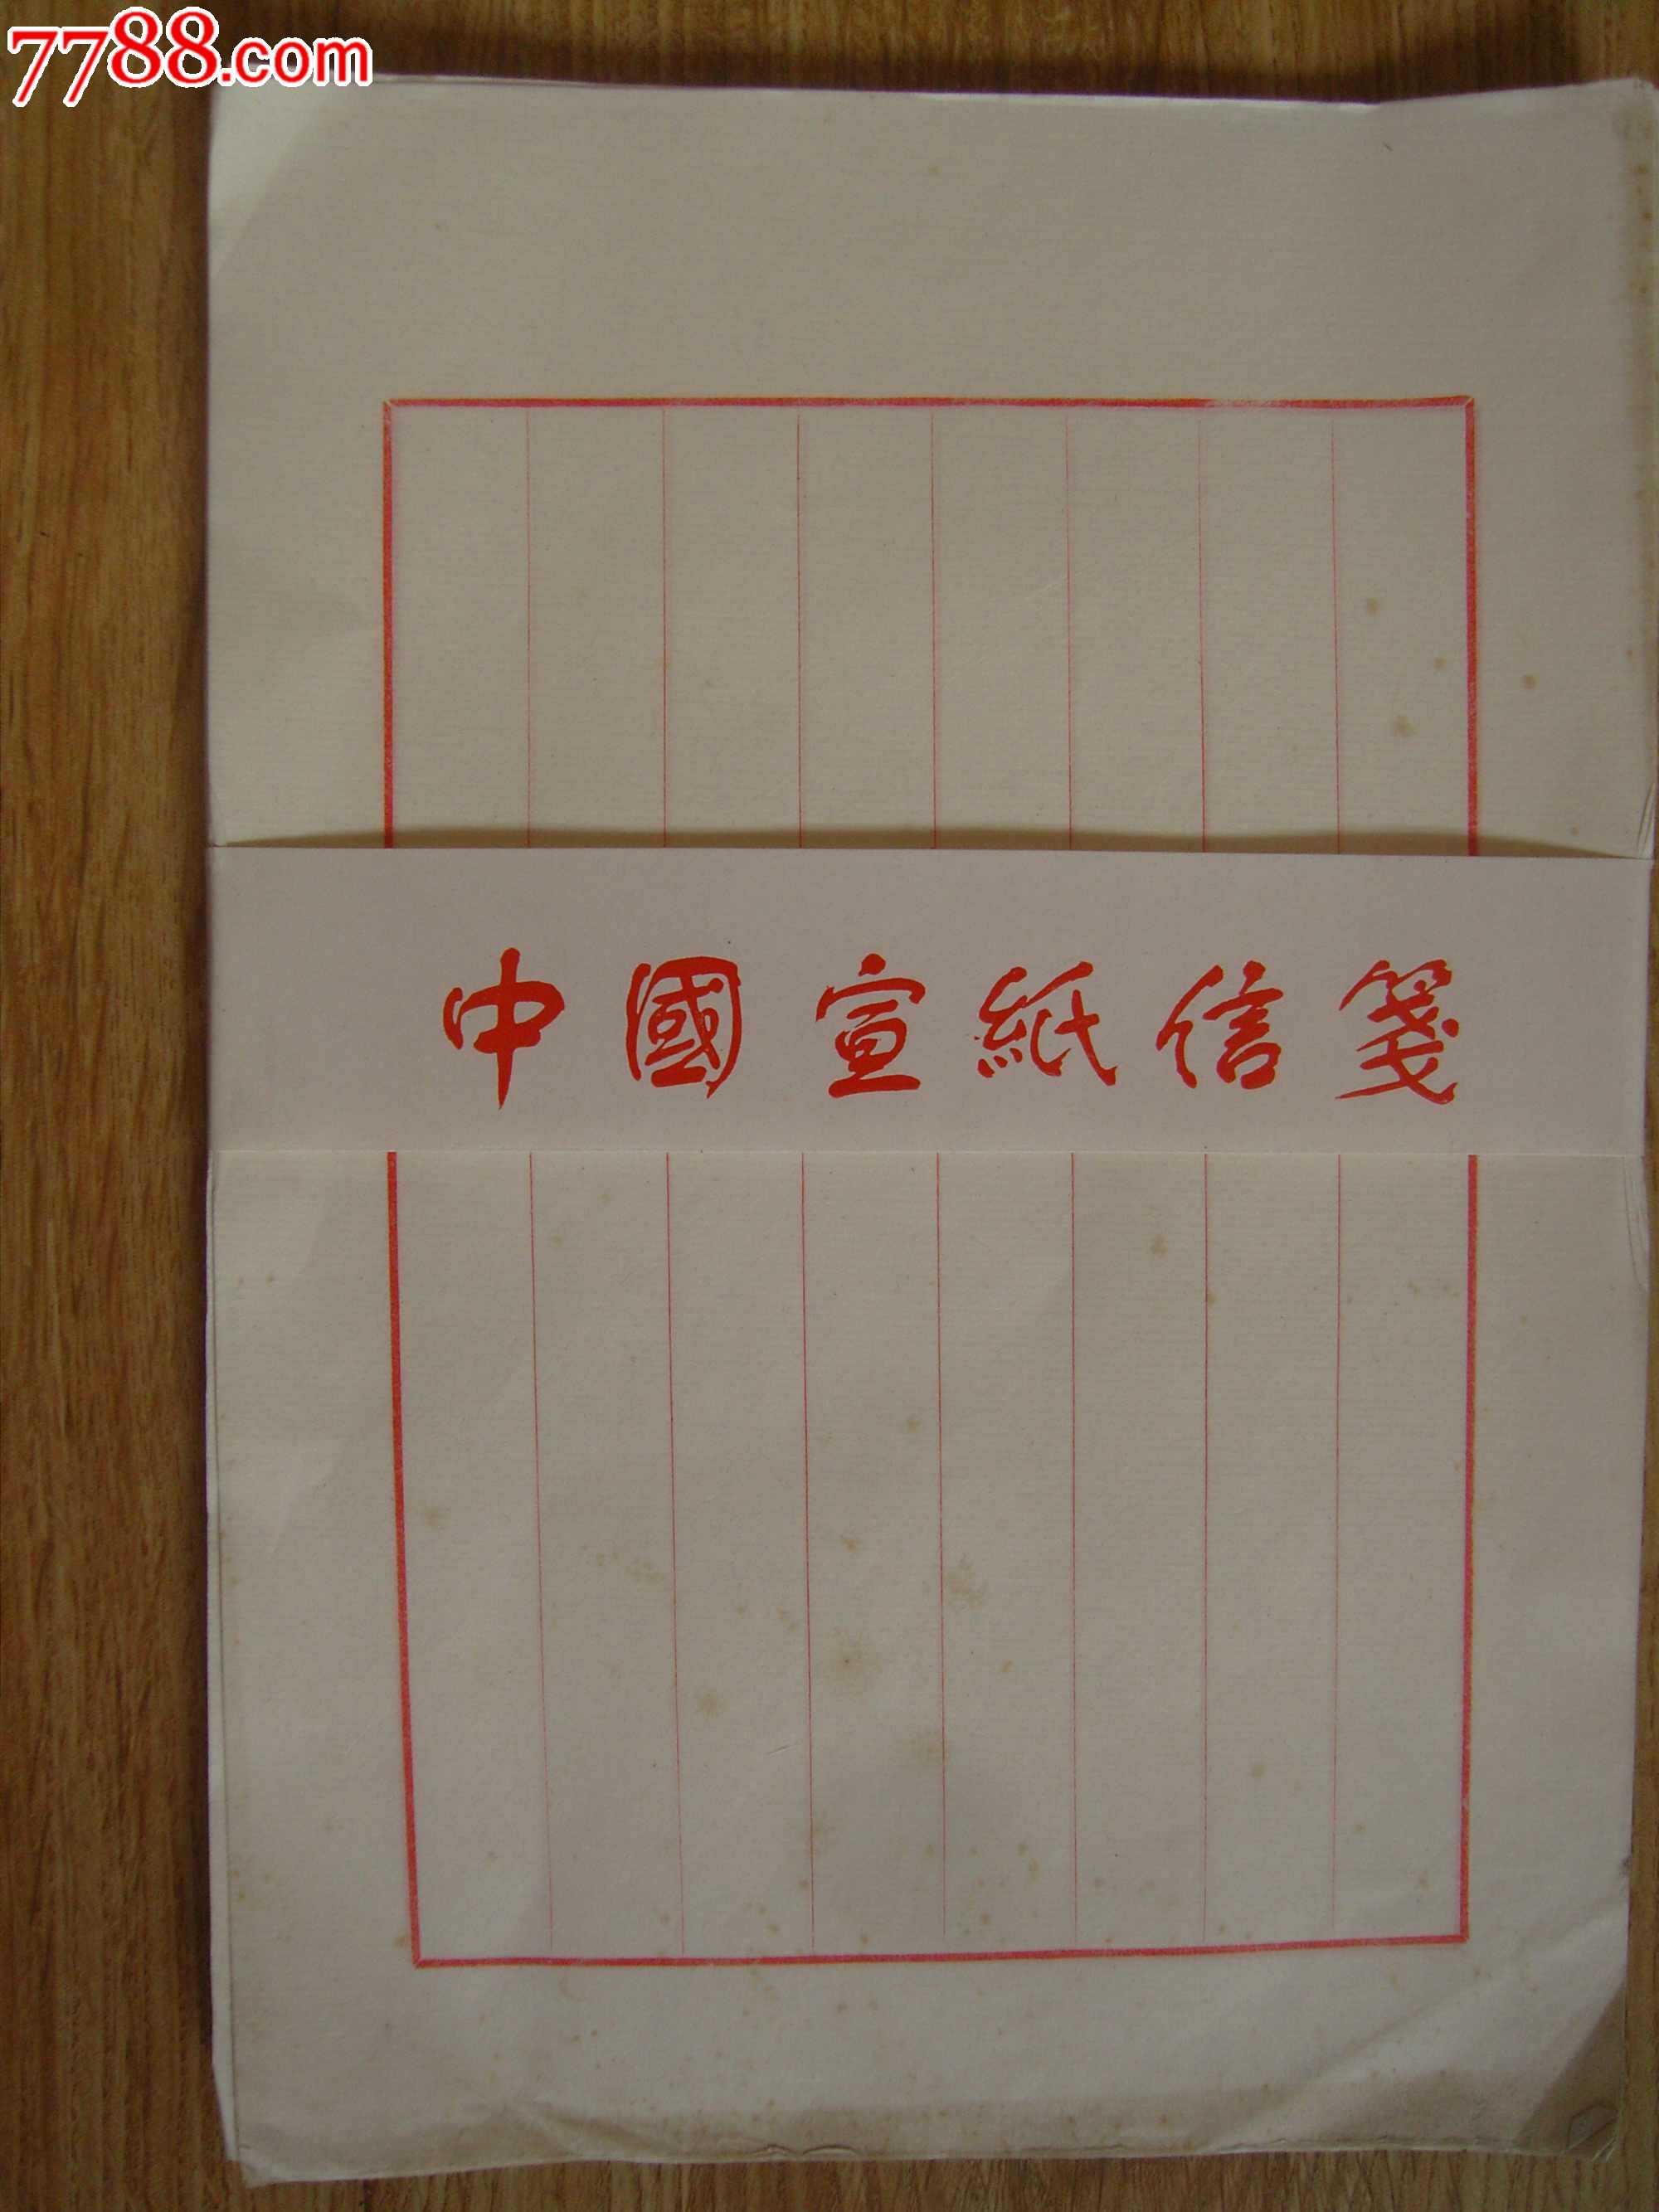 7788.com
中國宣紙信箋